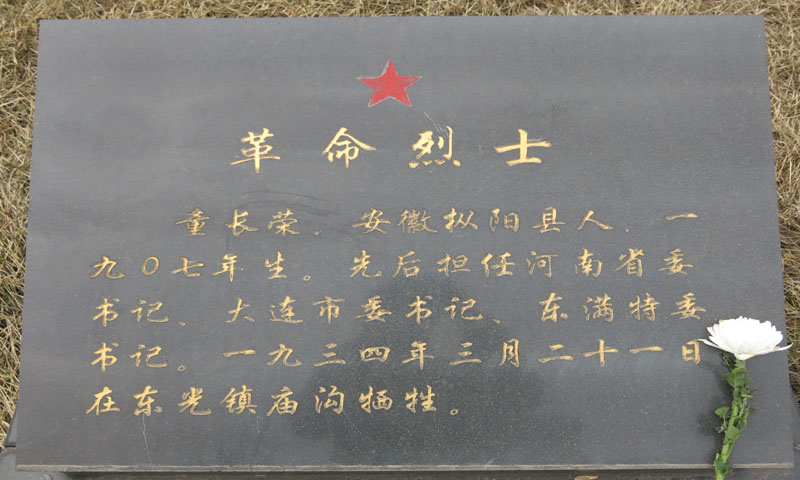 革命烈士
童长荣、安徽枞阳县人、一
九〇七年生。先后担任河南省委
书记、大连市委书记、东满特委
书记。一九三四年三月二十一日
在东光镇庙沟牺牲。